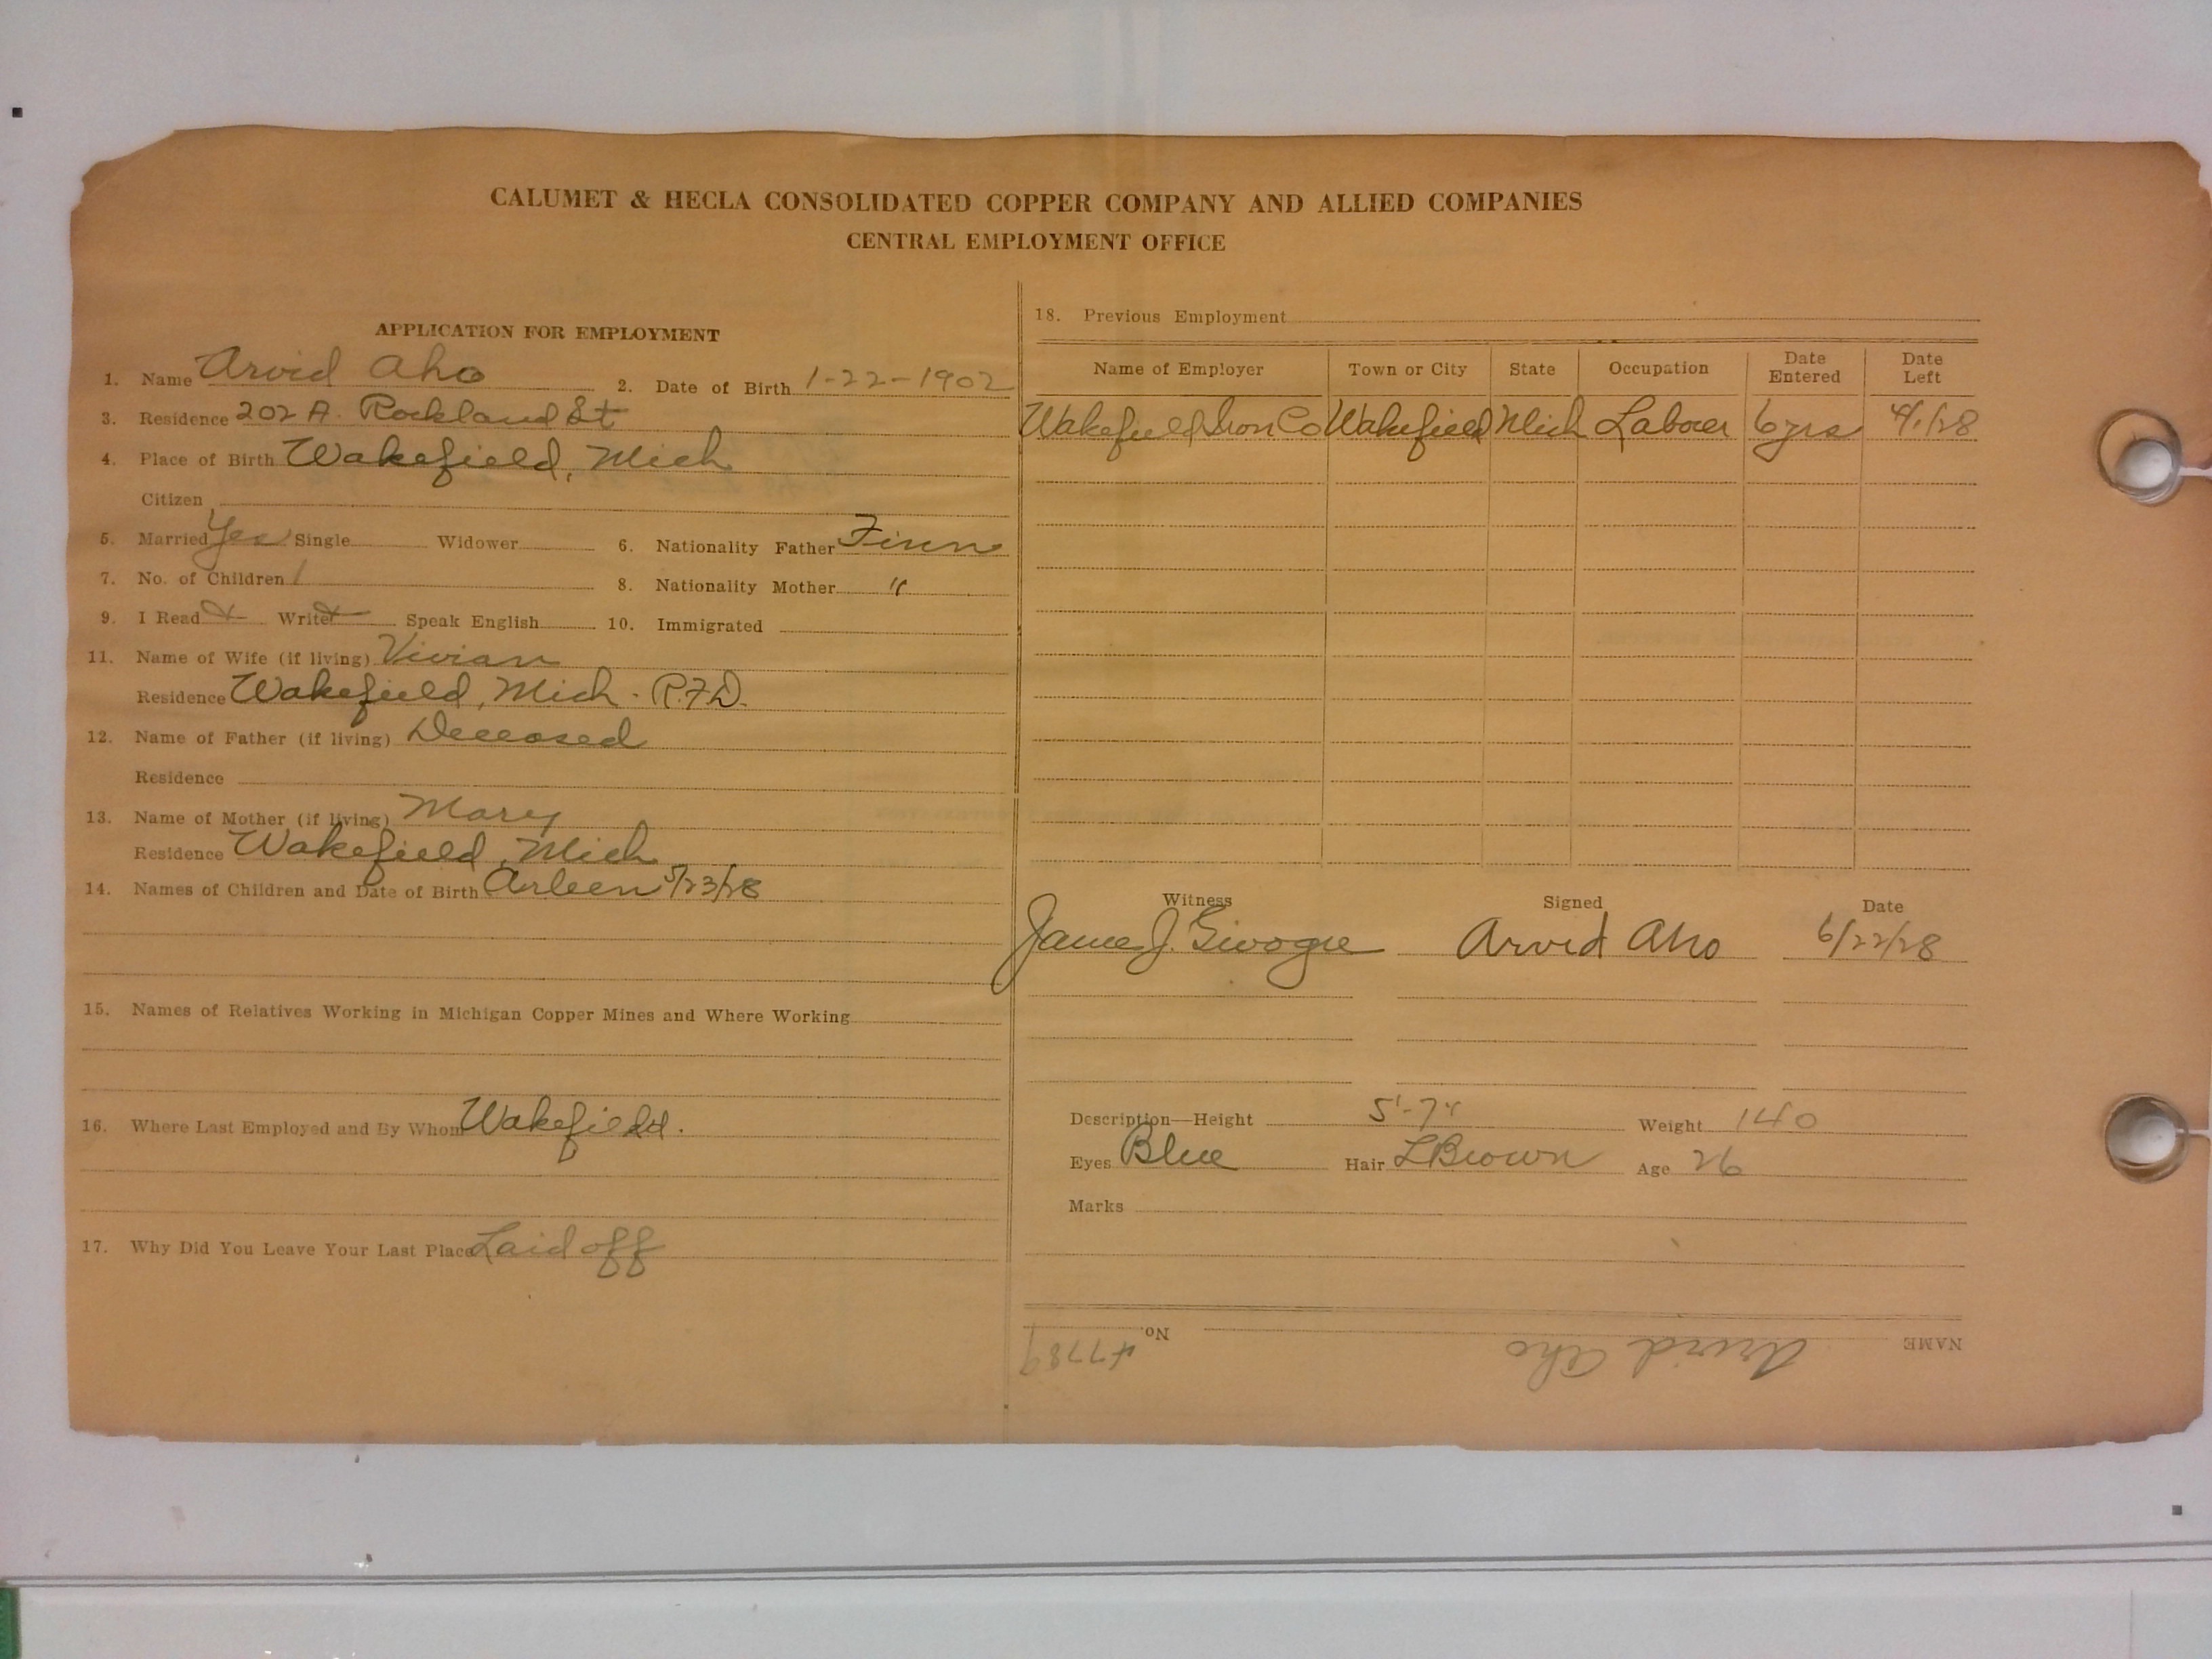 CALUMET & HECLA CONSOLIDATED COPPER COMPANY AND ALLIED COMPANIES
CENTRAL EMPLOYMENT OFFICE
APPLICATION FOR EMPLOYMENT
1. Name Arvid Aho 2. Date of Birth 1-22-1902
3. Residence 202 A. Rockland St
4. Place of Birth Wakefield, Mich
Citizen
5. Married Yes Single Widower 6. Nationality Father Finn
7. No. of Children 1 8. Nationality Mother "
9. I Read Write Speak English 10. Immigrated
11. Name of Wife (if living) Vivian
Residence Wakefield, Mich. R.F.D.
12. Name of Father (if living) Deceased
Residence
13. Name of Mother (if living) Mary
Residence Wakefield, Mich
14. Names of Children and Date of Birth Arleen 5/23/28
15. Names of Relatives Working in Michigan Copper Mines and Where Working
16. Where Last Employed and By Whom Wakefield.
17. Why Did You Leave Your Last Place Laid off
18. Previous Employment
Name of Employer Town or City State Occupation Date Entered Date Left
Wakefield Iron Co Wakefield Mich Laborer 6 yrs 4/1/28
Witness Signed Date
James J. Arvid Aho 6/22/28
Description—Height 5'-7" Weight 140
Eyes Blue Hair L Brown Age 26
Marks
NAME Arvid Aho No. 47789